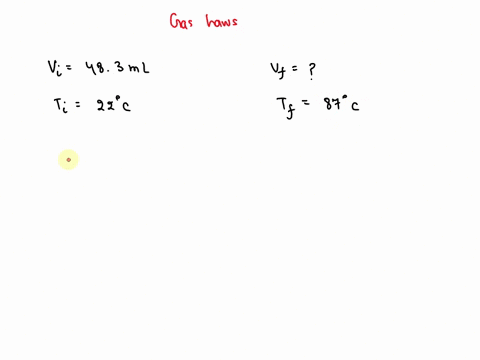 Gas Laws
Vi = 48.3 mL
Vf = ?
Ti = 22°C
Tf = 87°C